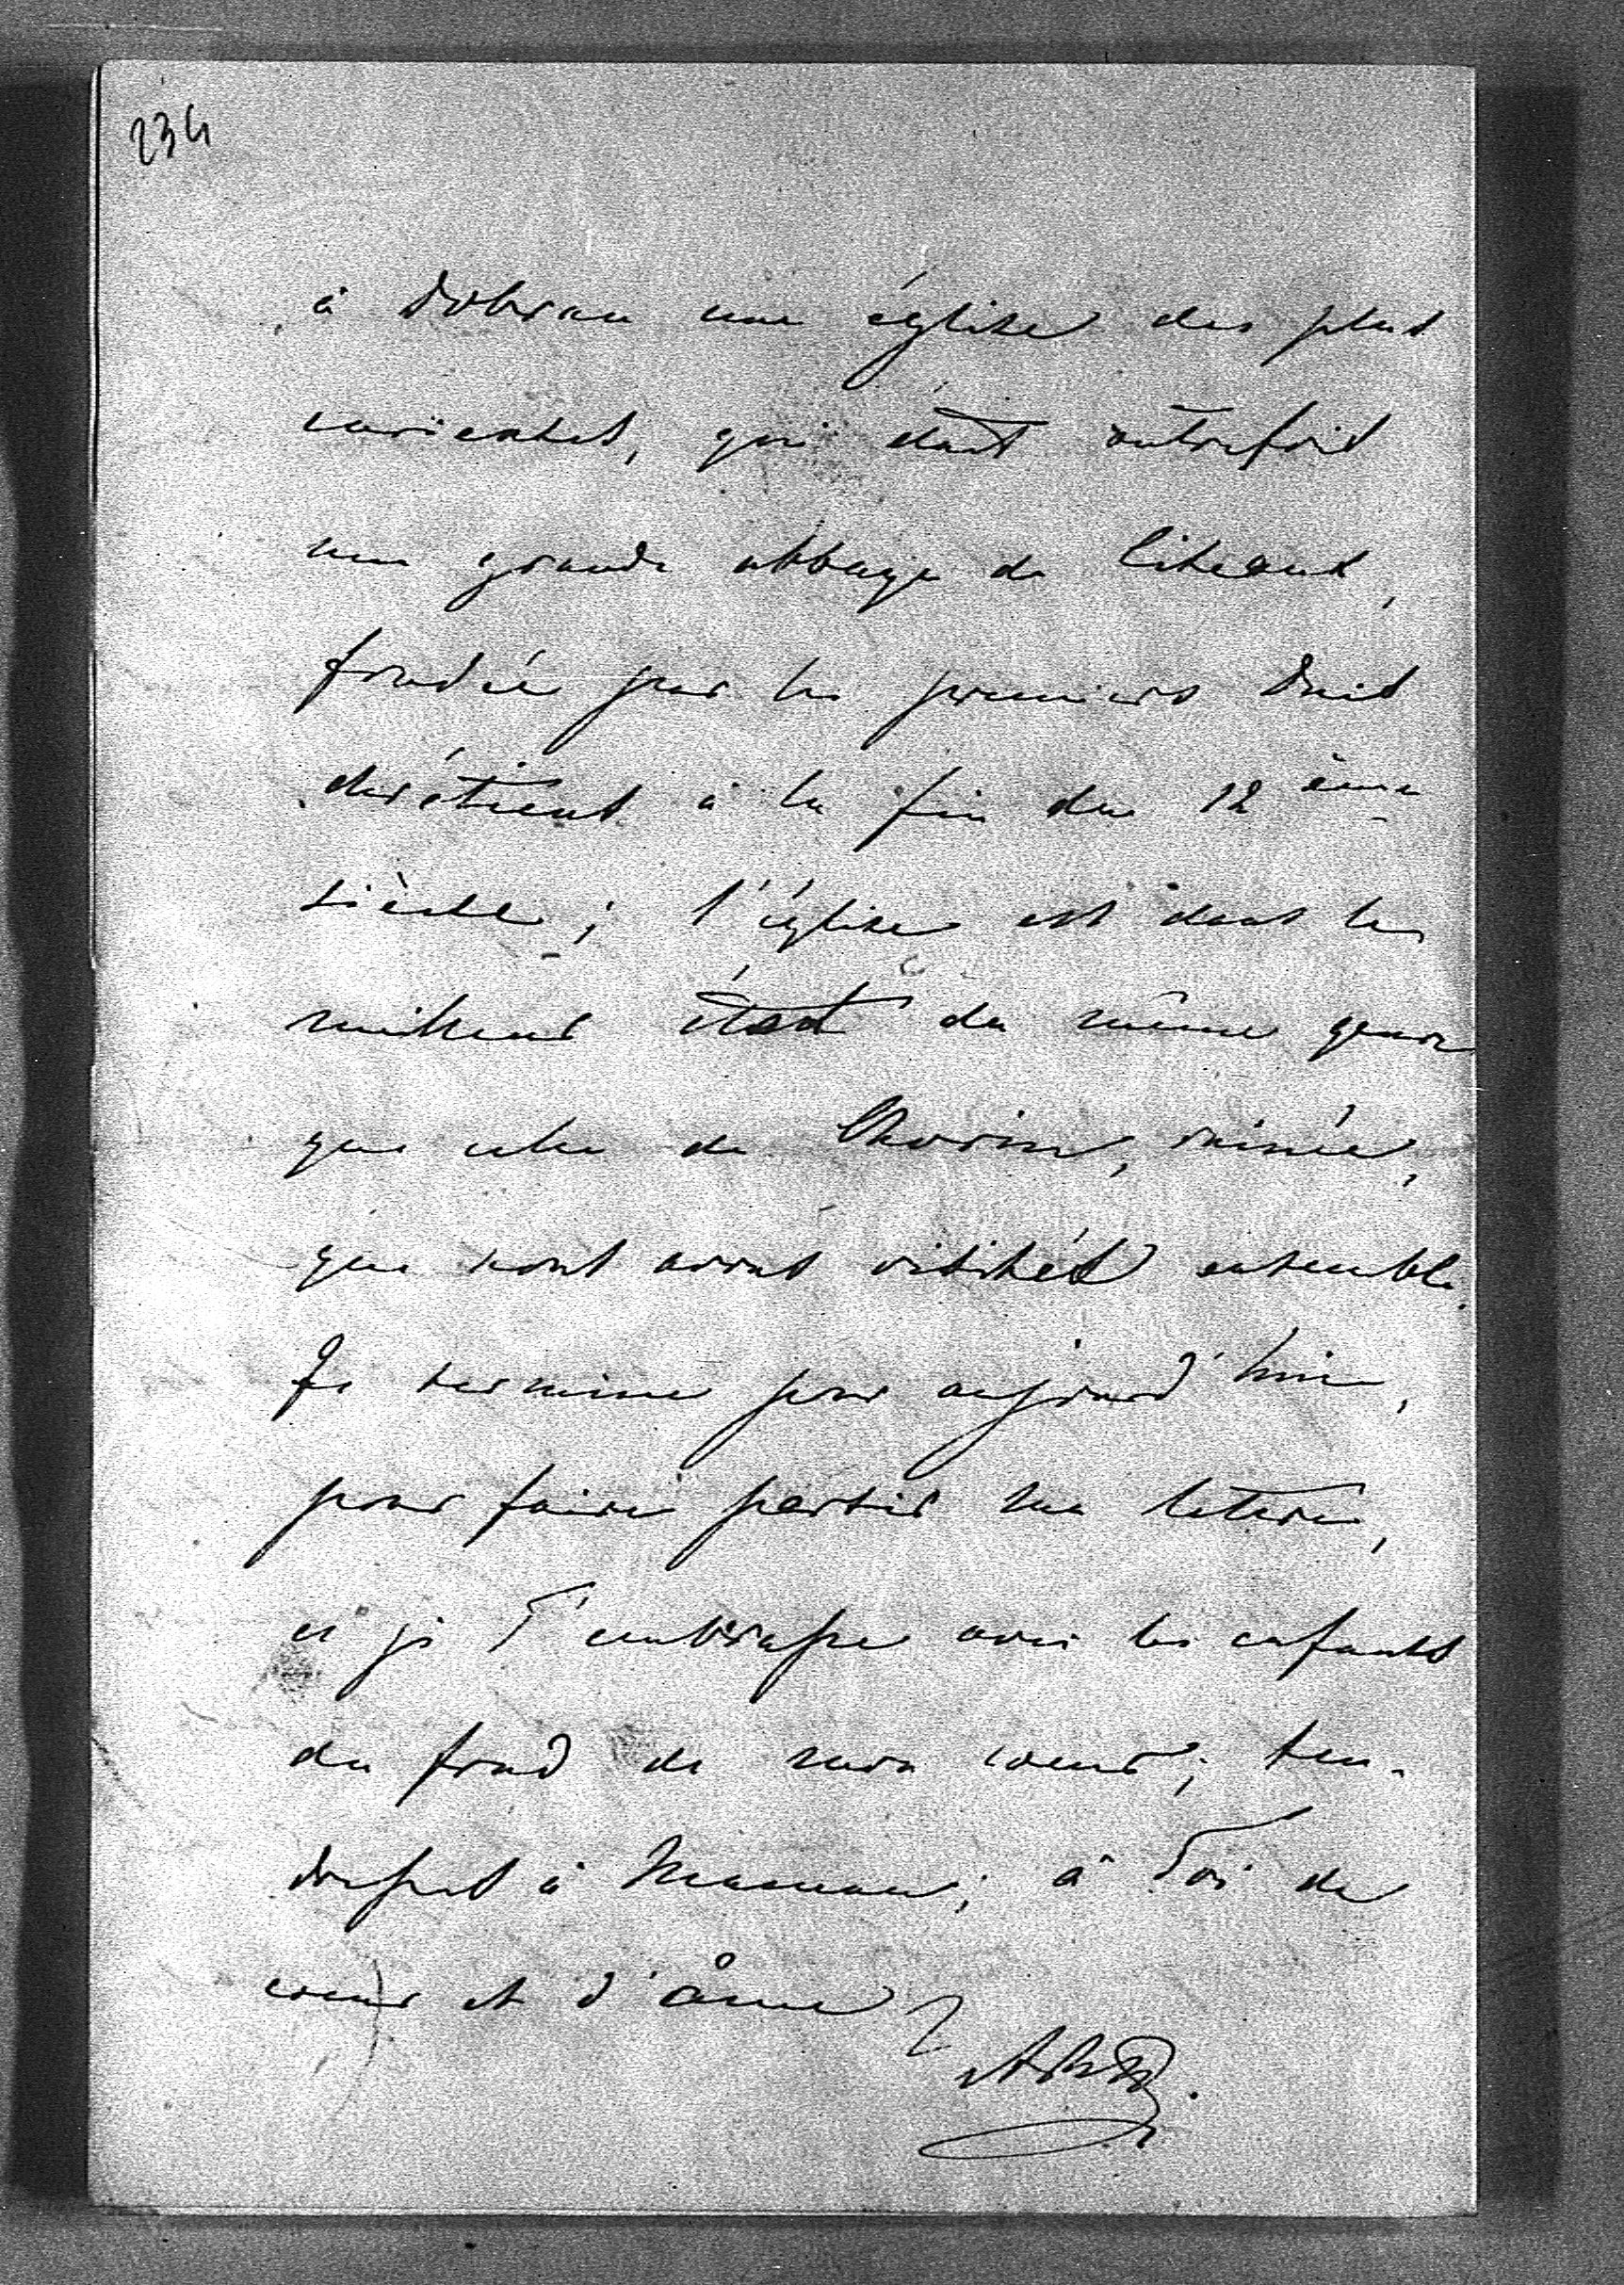 234
à Dobran une église des plus
curieuses, qui était autrefois
une grande abbaye de Citeaux,
fondée par les premiers Ducs
chrétiens à la fin du 12 ème
siècle; l'église est dans le
meilleur état du même genre
que celle de Chorin, ruinée,
que nous avons visitées ensemble.
Je termine pour aujourd'hui,
pour faire partir ma lettre,
et je T'embrasse avec les enfants
du fond de mon coeur; ten-
dresses à Maman; à Toi de
coeur et d'âme